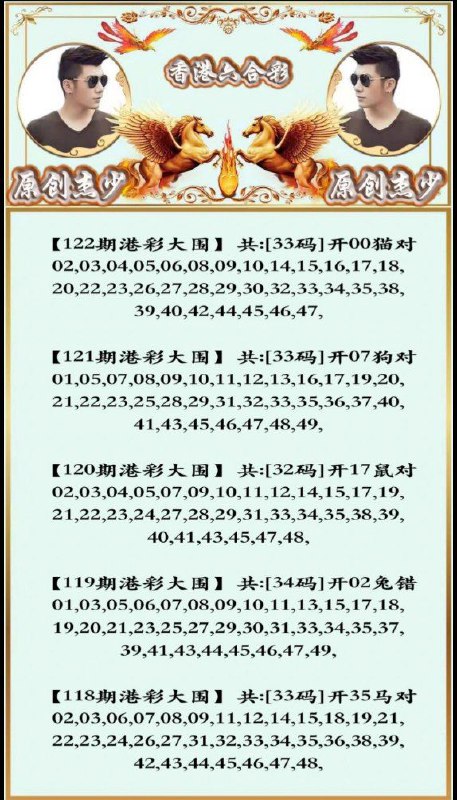 香港六合彩
原创杰少
原创杰少
【122期港彩大围】 共:[33码]开00猫对
02,03,04,05,06,08,09,10,14,15,16,17,18,
20,22,23,26,27,28,29,30,32,33,34,35,38,
39,40,42,44,45,46,47,
【121期港彩大围】 共:[33码]开07狗对
01,05,07,08,09,10,11,12,13,16,17,19,20,
21,22,23,25,28,29,31,32,33,35,36,37,40,
41,43,45,46,47,48,49,
【120期港彩大围】 共:[32码]开17鼠对
02,03,04,05,07,09,10,11,12,14,15,17,19,
21,22,23,24,27,28,29,31,33,34,35,38,39,
40,41,43,45,47,48,
【119期港彩大围】 共:[34码]开02兔错
01,03,05,06,07,08,09,10,11,13,15,17,18,
19,20,21,23,25,27,29,30,31,33,34,35,37,
39,41,43,44,45,46,47,49,
【118期港彩大围】 共:[33码]开35马对
02,03,06,07,08,09,11,12,14,15,18,19,21,
22,23,24,26,27,31,32,33,34,35,36,38,39,
42,43,44,45,46,47,48,